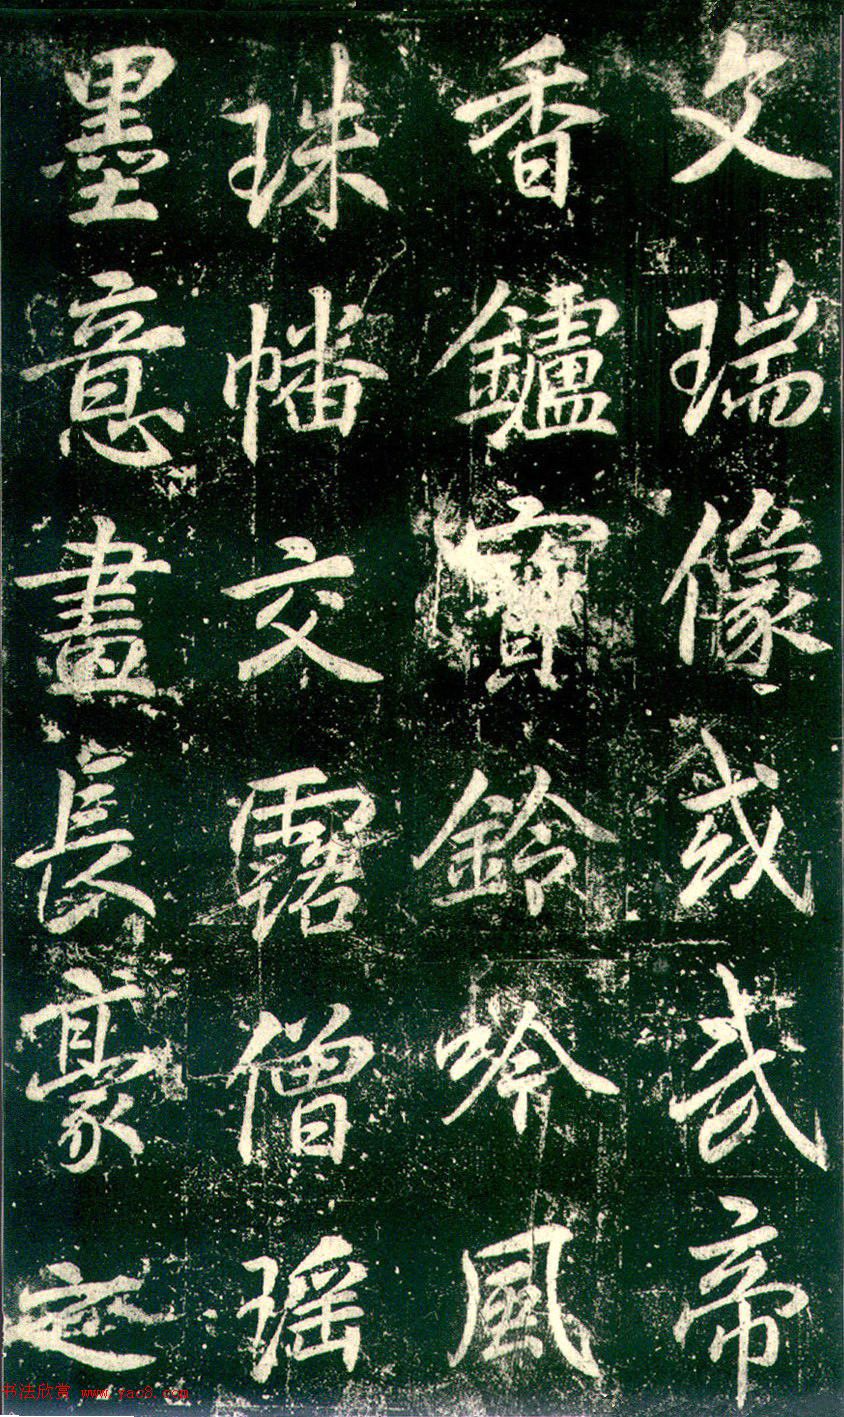 文瑞像或武帝
香鑪寶鈴吟風
珠幡交露僧瑶
墨意畫長豪之
书法欣赏 www.yac8.com